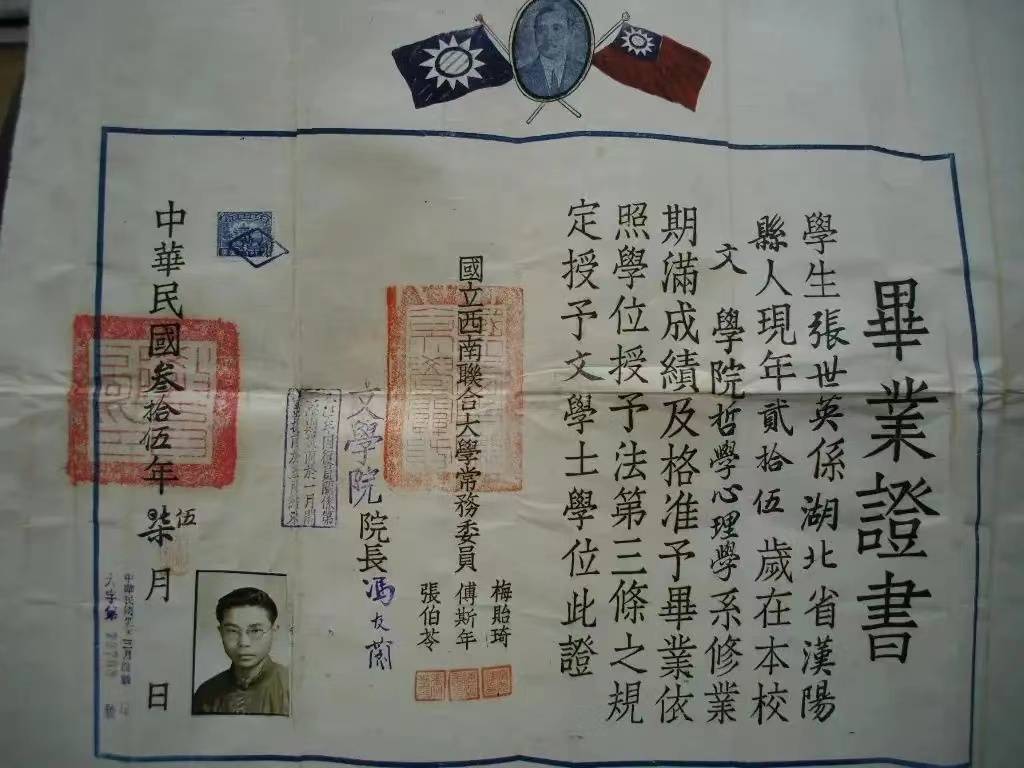 畢業證書
學生張世英係湖北省漢陽
縣人現年貳拾伍歲在本校
文學院哲學心理學系修業
期滿成績及格准予畢業依
照學位授予法第三條之規
定授予文學士學位此證
國立西南聯合大學常務委員
梅貽琦
傅斯年
張伯苓
文學院院長馮友蘭
中華民國叁拾伍年柒月日
伍